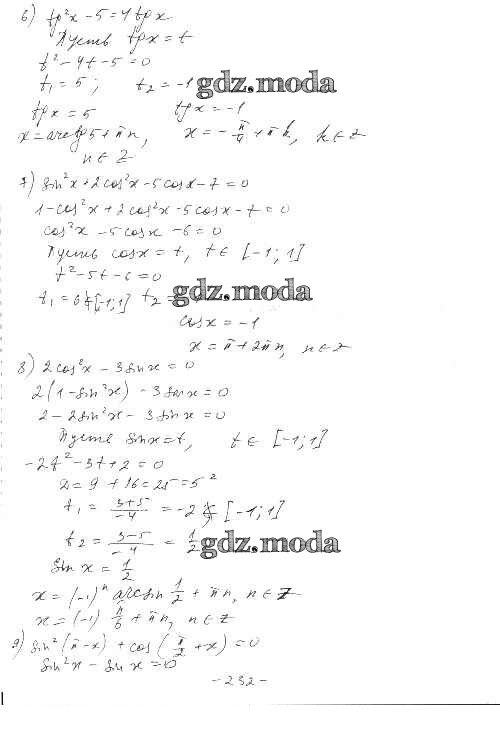 6) tg²x - 5 = 4 tg x
Пусть tg x = t
t² - 4t - 5 = 0
t₁ = 5; t₂ = -1 gdz.moda
tg x = 5 tg x = -1
x = arctg 5 + πn, x = -π/4 + πk, k ∈ Z
n ∈ Z
7) sin²x + 2cos²x - 5cosx - 7 = 0
1 - cos²x + 2cos²x - 5cosx - 7 = 0
cos²x - 5cosx - 6 = 0
Пусть cosx = t, t ∈ [-1; 1]
t² - 5t - 6 = 0
t₁ = 6 ∉ [-1; 1] t₂ = gdz.moda
cosx = -1
x = π + 2πn, n ∈ Z
8) 2cos²x - 3sinx = 0
2(1 - sin²x) - 3sinx = 0
2 - 2sin²x - 3sinx = 0
Пусть sinx = t, t ∈ [-1; 1]
-2t² - 3t + 2 = 0
D = 9 + 16 = 25 = 5²
t₁ = (3+5)/-4 = -2 ∉ [-1; 1]
t₂ = (3-5)/-4 = 1/2 gdz.moda
sin x = 1/2
x = (-1)ⁿ arcsin 1/2 + πn, n ∈ Z
x = (-1) π/6 + πn, n ∈ Z
9) sin²(π-x) + cos(π/2 + x) = 0
sin²x - sin x = 0
- 232 -